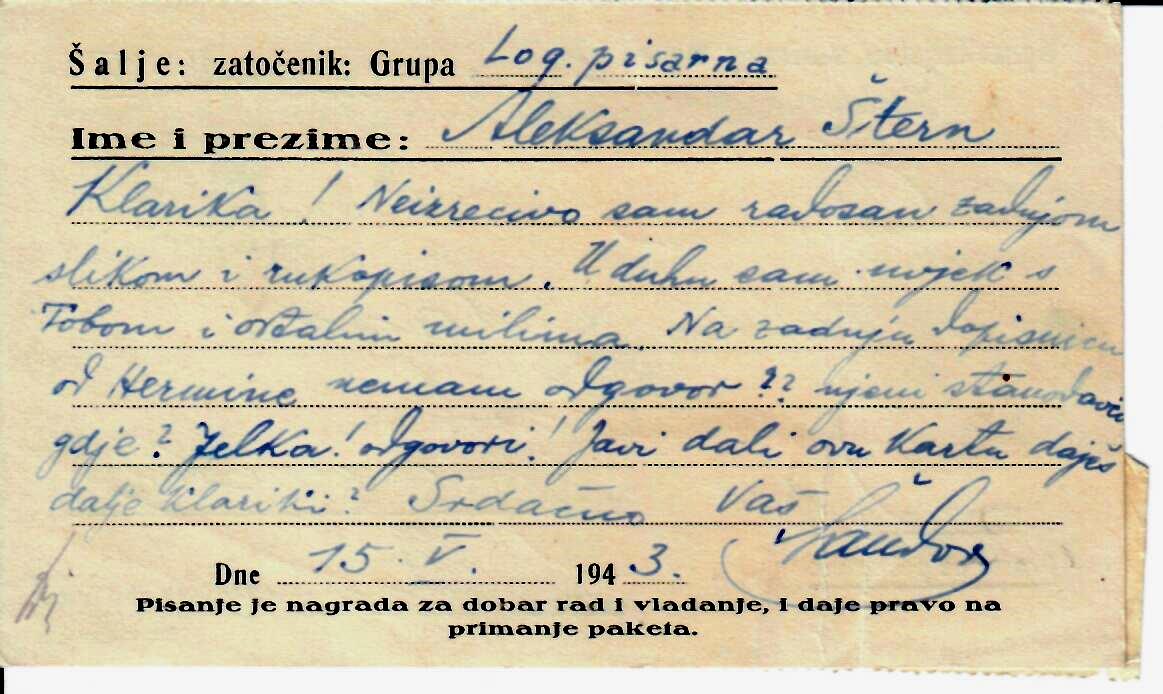 Šalje: zatočenik: Grupa Log. pisarna
Ime i prezime: Aleksandar Štern
Klarika! Neizrecivo sam radosan zadnjom
slikom i rukopisom. U duhu sam uvjek s
Tobom i ostalim milima. Na zadnju dopisnicu
od Hermine nemam odgovor?? njeni stanodavci
gdje? Jelka! odgovori! Javi dali ovu kartu daješ
dalje Klariki? Srdačno Vaš
Dne 15. V. 1943.
Pisanje je nagrada za dobar rad i vladanje, i daje pravo na
primanje paketa.